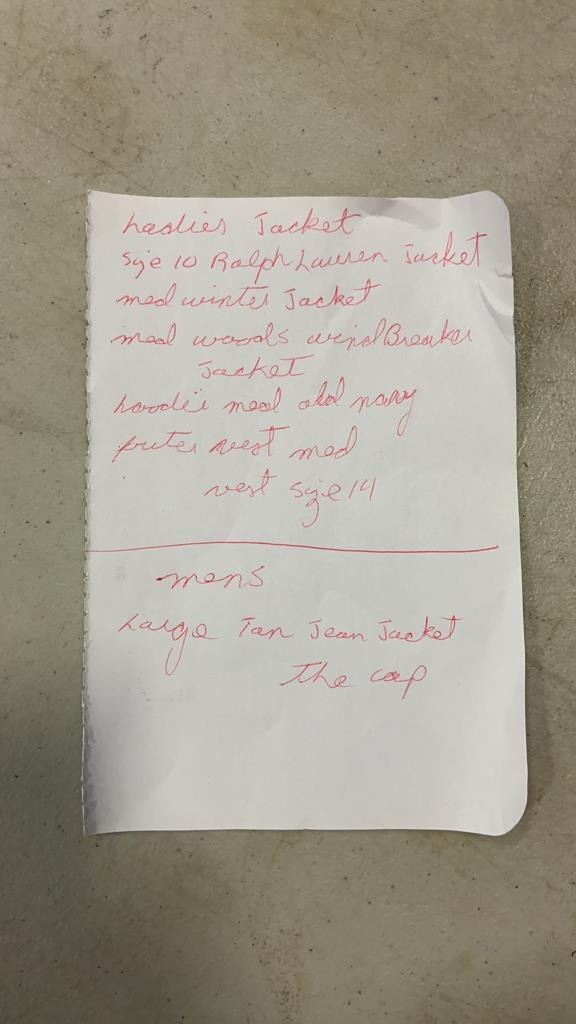 Ladies Jacket
Size 10 Ralph Lauren Jacket
med winter Jacket
med woods windBreaker
Jacket
hoodie med old navy
vest med
vest size 14
mens
Large Tan Jean Jacket
The